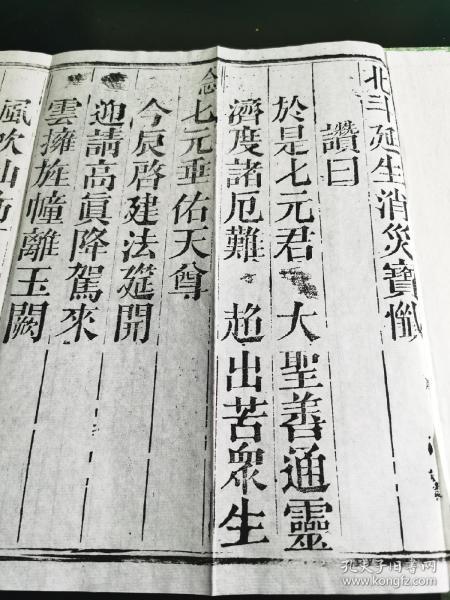 北斗延生消災寶懺
讚曰
於是七元君 大聖善通靈
濟度諸厄難 超出苦衆生
念七元垂佑天尊
今辰啓建法筵開
迎請高眞降駕來
雲擁旌幢離玉闕
風吹仙
孔夫子旧书网
www.kongfz.com